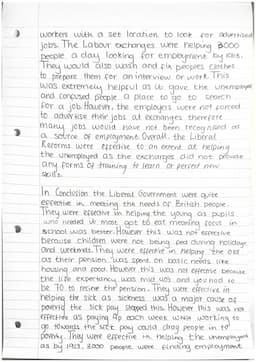 workers with a set location to look for advertised
jobs. The Labour exchanges were helping 3000
people a day looking for employment by 1913.
They would also wash and fix peoples clothes
to prepare them for an interview or work. This
was extremely helpful as it gave the unemployed
and confused people a place to go to search
for a job. However, the employers were not forced
to advertise their jobs at exchanges therefore
many jobs would have not been recognised as
a source of employment. Overall, the Liberal
Reforms were effective to an extent at helping
the unemployed as the exchanges did not provide
any forms of training to learn or perfect new
skills.
In Conclusion the Liberal Government were quite
effective in meeting the needs of British people.
They were effective in helping the young as pupils
who needed it most got to eat meaning focus in
school was better. However this was not effective
because children were not being fed during holidays
and weekends. They were effective in helping the old
as their pension was spent on basic needs like
housing and food. However this was not effective because
the life expectancy was mid 40s and you had to
be 70 to recieve the pension. They were effective in
helping the sick as sickness was a major cause of
poverty the sick pay stopped this. However this was not
effective as paying 4p each week while working to
go towards the sick pay could drag people in to
poverty. They were effective in helping the unemployed
as by 1913, 3000 people were finding employment